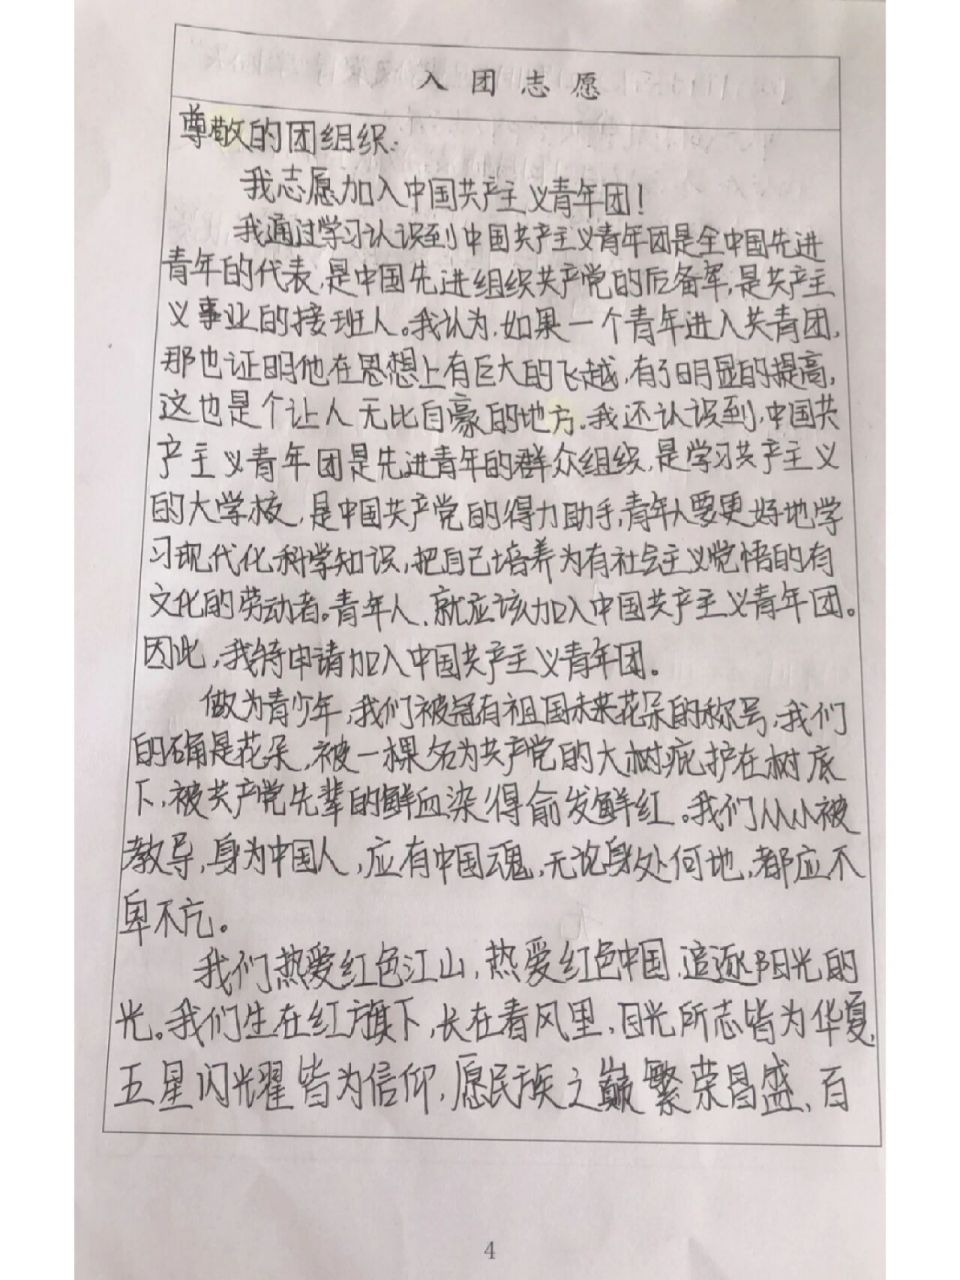 入团志愿
尊敬的团组织:
我志愿加入中国共产主义青年团!
我通过学习认识到中国共产主义青年团是全中国先进
青年的代表,是中国先进组织共产党的后备军,是共产主
义事业的接班人。我认为,如果一个青年进入共青团,
那也证明他在思想上有巨大的飞越,有了明显的提高,
这也是个让人无比自豪的地方。我还认识到,中国共
产主义青年团是先进青年的群众组织,是学习共产主义
的大学校,是中国共产党的得力助手,青年人要更好地学
习现代化科学知识,把自己培养为有社会主义觉悟的有
文化的劳动者。青年人、就应该加入中国共产主义青年团。
因此,我特申请加入中国共产主义青年团。
做为青少年,我们被冠有祖国未来花朵的称号,我们
的确是花朵,被一棵名为共产党的大树庇护在树底
下,被共产党先辈的鲜血染得俞发鲜红。我们从小被
教导,身为中国人,应有中国魂,无论身处何地,都应不
卑不亢。
我们热爱红色江山,热爱红色中国,追逐阳光的
光。我们生在红旗下,长在春风里,目光所志皆为华夏,
五星闪光耀皆为信仰,愿民族之巅繁荣昌盛,百
4